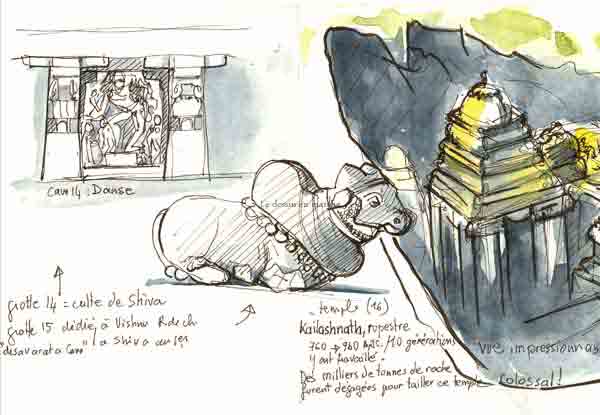 Cave 14 : Danse
grotte 14 = culte de Shiva
grotte 15 dédié, à Vishnu
à Shiva
temple (16)
Kailashnath, rupestre
760 → 960 /10 générations
y ont travaillé.
Des milliers de tonnes de roche
furent dégagées pour tailler ce temple colossal!
vue impressionnas